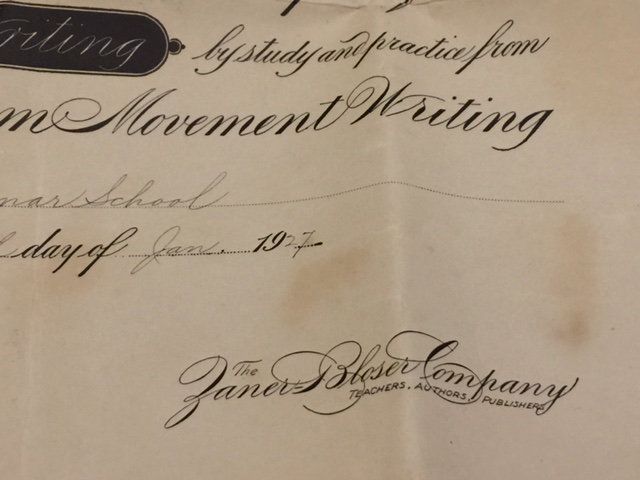 riting by study and practice from
m Movement Writing
mar School
day of Jan. 1927
The
Zaner-Bloser Company
TEACHERS, AUTHORS, PUBLISHERS